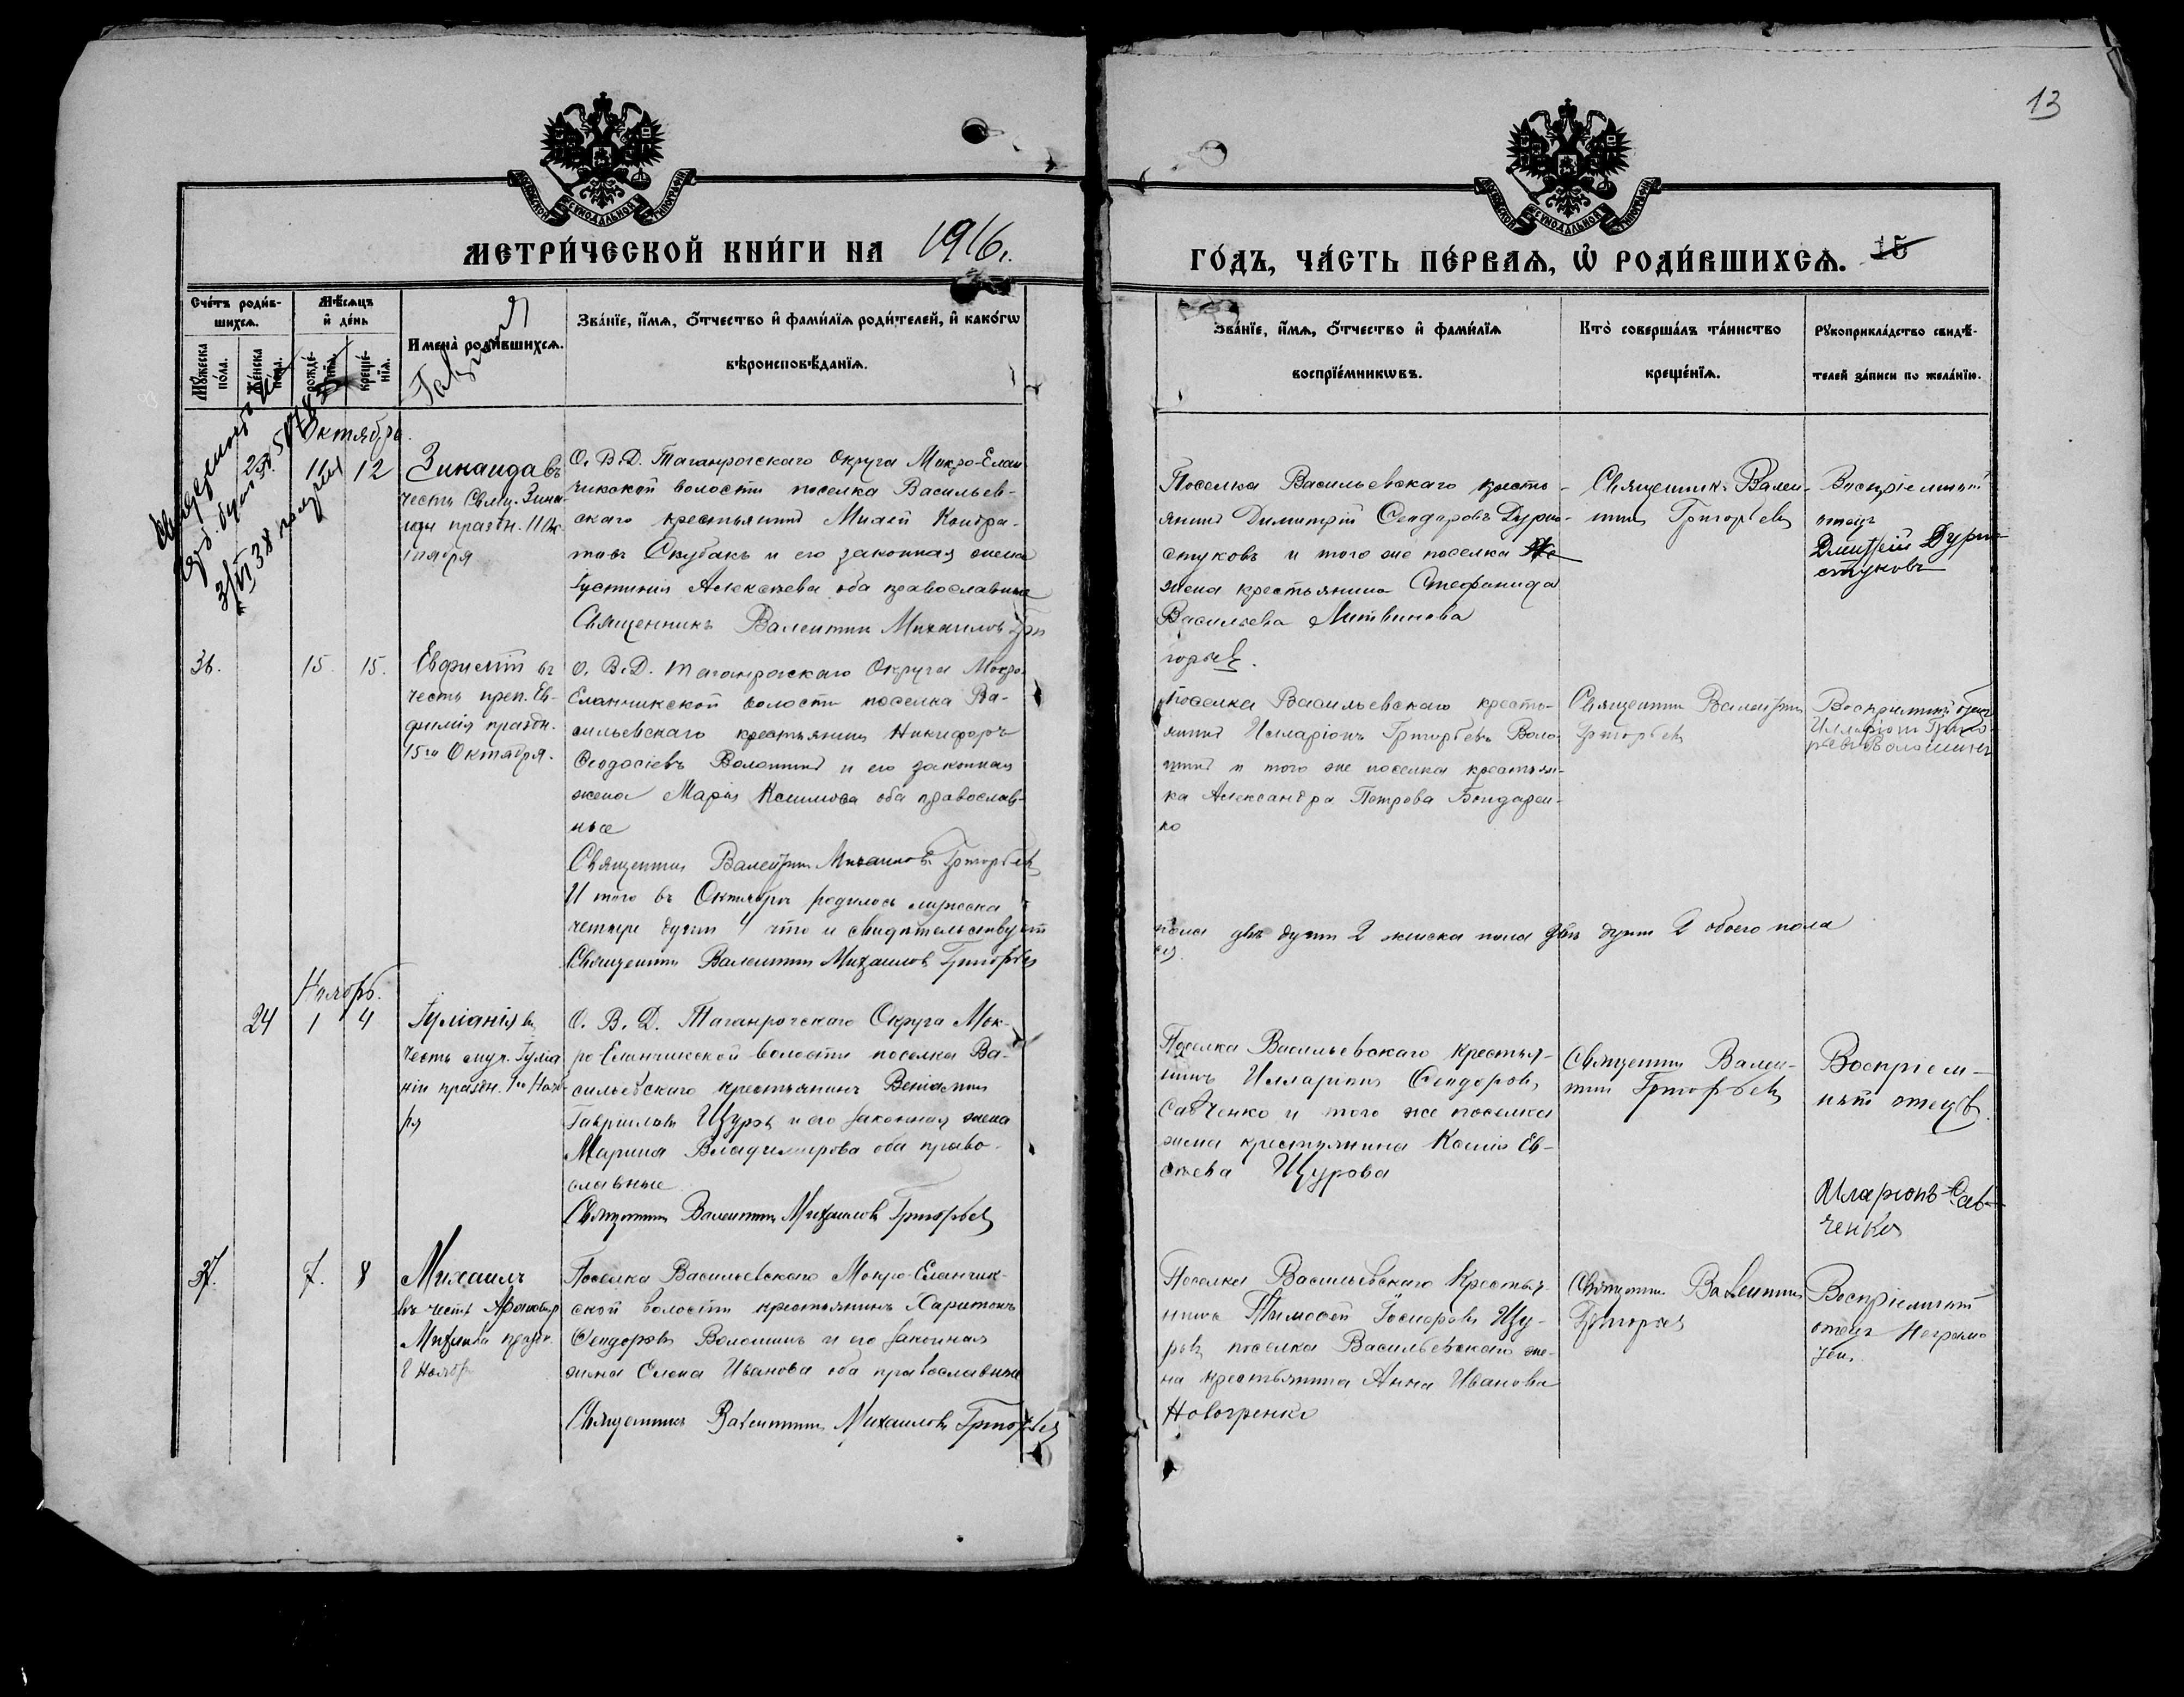 13
МЕТРИ́ЧЕСКОЙ КНИ́ГИ НА 1916 г.
ГО́ДЪ, ЧА́СТЬ ПЕ́РВАЯ, Ѡ РОДИ́ВШИХСЯ. 15
Сче́тъ роди́в-
шихся.
Мѣ́сяцъ
и҆ де́нь
Мꙋ́жеска по́ла.
Же́нска по́ла.
рожде́-
нїѧ.
креще́-
нїѧ.
И҆мена̀ роди́вшихсѧ.
Зва́нїе, и҆́мѧ, ѻ҆́тчество и҆ фами́лїѧ роди́телей, и҆ како́гѡ
вѣроисповѣ́данїѧ.
Зва́нїе, и҆́мѧ, ѻ҆́тчество и҆ фами́лїѧ
воспрїе́мникѡвъ.
Кто̀ соверша́лъ та́инство
креще́нїѧ.
Рꙋкоприкла́дство свидѣ́-
телей за́писи по жела́нїю.
Октябрь
11 12
Зинаида въ
честь Св. муч. Зина-
иды праздн. 11 Ок-
тября
О. В. Д. Таганрогскаго Округа Мокро-Елан-
чикской волости поселка Васильев-
скаго крестьянинъ
и его законная жена
Іустинія Алексѣева оба православные
Священникъ Валентинъ Михаиловъ Гри-
горьевъ.
Поселка Васильевскаго кресть-
янинъ Димитрій Ѳеодоровъ Дурно-
стуковъ и того же поселка
жена крестьянина Стефанида
Васильева Литвинова
Священникъ Вален-
тинъ Григорьевъ
Воспріемный
отецъ
Дмитрій Дурно-
стуковъ
36. 15 15.
Евфимій въ
честь преп. Ев-
фимія праздн.
15го Октября.
О. В. Д. Таганрогскаго Округа Мокро-
Еланчикской волости поселка Ва-
сильевскаго крестьянинъ Никифоръ
Ѳеодосіевъ Волошинъ и его законная
жена Марія Климова оба православ-
ные
Священникъ Валентинъ Михаиловъ Григорьевъ
Поселка Васильевскаго кресть-
янинъ Илларіонъ Григорьевъ Воло-
шинъ и того же поселка крестьян-
ка Александра Петрова Бондарен-
ко
Священникъ Валентинъ
Григорьевъ
Воспріемный отецъ
Илларіонъ Григо-
рьевъ Волошинъ
Итого въ Октябрѣ родилось мужеска
пола двѣ души 2 женска пола двѣ души 2 обоего пола
четыре души 4 что и свидѣтельствуетъ
Священникъ Валентинъ Михаиловъ Григорьевъ
Ноябрь.
24 1 4
Іуліанія въ
честь муч. Іуліа-
ніи праздн. 1го Нояб-
ря
О. В. Д. Таганрогскаго Округа Мок-
ро-Еланчикской волости поселка Ва-
сильевскаго крестьянинъ Веніаминъ
Гавріиловъ Щуровъ и его законная жена
Марина Владимирова оба право-
славные
Священникъ Валентинъ Михаиловъ Григорьевъ
Поселка Васильевскаго крестья-
нинъ Илларіонъ Ѳеодоровъ
Савченко и того же поселка
жена крестьянина Ксенія Ев-
сѣева Щурова
Священникъ Вален-
тинъ Григорьевъ
Воспріем-
ный отецъ.
Иларіонъ Сав-
ченко
37. 7. 8
Михаилъ
въ честь
Михаила праздн.
8 Ноября
Поселка Васильевскаго Мокро-Еланчик-
ской волости крестьянинъ Харитонъ
Ѳеодоровъ Волошинъ и его законная
жена Елена Иванова оба православные
Священникъ Валентинъ Михаиловъ Григорьевъ
Поселка Васильевскаго крестья-
нинъ Тимоѳей Щу-
ровъ поселка Васильевскаго же-
на крестьянина Анна Иванова
Священникъ Валентинъ
Григорьевъ
Воспріемный
отецъ Неграмо-
тенъ.